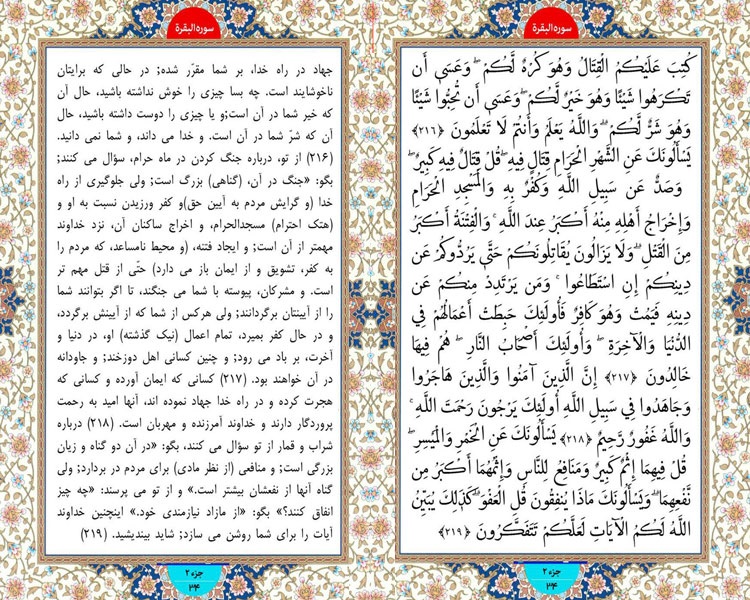 سوره البقرة
كُتِبَ عَلَيْكُمُ الْقِتَالُ وَهُوَ كُرْهٌ لَّكُمْ ۖ وَعَسَىٰ أَن
تَكْرَهُوا شَيْئًا وَهُوَ خَيْرٌ لَّكُمْ ۖ وَعَسَىٰ أَن تُحِبُّوا شَيْئًا
وَهُوَ شَرٌّ لَّكُمْ ۗ وَاللَّهُ يَعْلَمُ وَأَنتُمْ لَا تَعْلَمُونَ ﴿۲۱۶﴾
يَسْأَلُونَكَ عَنِ الشَّهْرِ الْحَرَامِ قِتَالٍ فِيهِ ۖ قُلْ قِتَالٌ فِيهِ كَبِيرٌ ۖ
وَصَدٌّ عَن سَبِيلِ اللَّهِ وَكُفْرٌ بِهِ وَالْمَسْجِدِ الْحَرَامِ
وَإِخْرَاجُ أَهْلِهِ مِنْهُ أَكْبَرُ عِندَ اللَّهِ ۚ وَالْفِتْنَةُ أَكْبَرُ
مِنَ الْقَتْلِ ۗ وَلَا يَزَالُونَ يُقَاتِلُونَكُمْ حَتَّىٰ يَرُدُّوكُمْ عَن
دِينِكُمْ إِنِ اسْتَطَاعُوا ۚ وَمَن يَرْتَدِدْ مِنكُمْ عَن
دِينِهِ فَيَمُتْ وَهُوَ كَافِرٌ فَأُولَٰئِكَ حَبِطَتْ أَعْمَالُهُمْ فِي
الدُّنْيَا وَالْآخِرَةِ ۖ وَأُولَٰئِكَ أَصْحَابُ النَّارِ ۖ هُمْ فِيهَا
خَالِدُونَ ﴿۲۱۷﴾ إِنَّ الَّذِينَ آمَنُوا وَالَّذِينَ هَاجَرُوا
وَجَاهَدُوا فِي سَبِيلِ اللَّهِ أُولَٰئِكَ يَرْجُونَ رَحْمَتَ اللَّهِ ۚ
وَاللَّهُ غَفُورٌ رَّحِيمٌ ﴿۲۱۸﴾ يَسْأَلُونَكَ عَنِ الْخَمْرِ وَالْمَيْسِرِ ۖ
قُلْ فِيهِمَا إِثْمٌ كَبِيرٌ وَمَنَافِعُ لِلنَّاسِ وَإِثْمُهُمَا أَكْبَرُ مِن
نَّفْعِهِمَا ۗ وَيَسْأَلُونَكَ مَاذَا يُنفِقُونَ قُلِ الْعَفْوَ ۗ كَذَٰلِكَ يُبَيِّنُ
اللَّهُ لَكُمُ الْآيَاتِ لَعَلَّكُمْ تَتَفَكَّرُونَ ﴿۲۱۹﴾
جزء ۲
۳۴
سوره البقرة
جهاد در راه خدا، بر شما مقرّر شده؛ در حالی که برایتان
ناخوشایند است. چه بسا چیزی را خوش نداشته باشید، حال آن
که خیر شما در آن است؛و یا چیزی را دوست داشته باشید، حال
آن که شرّ شما در آن است. و خدا می داند، و شما نمی دانید.
(۲۱۶) از تو، درباره جنگ کردن در ماه حرام، سؤال می کنند؛
بگو: «جنگ در آن، (گناهی) بزرگ است؛ ولی جلوگیری از راه
خدا (و گرایش مردم به آیین حق)و کفر ورزیدن نسبت به او و
(هتک احترام) مسجدالحرام، و اخراج ساکنان آن، نزد خداوند
مهمتر از آن است؛ و ایجاد فتنه، (و محیط نامساعد، که مردم را
به کفر، تشویق و از ایمان باز می دارد) حتّی از قتل مهم تر
است. و مشرکان، پیوسته با شما می جنگند، تا اگر بتوانند شما
را از آیینتان برگردانند؛ ولی هرکس از شما که از آیینش برگردد،
و در حال کفر بمیرد، تمام اعمال (نیک گذشته) او، در دنیا و
آخرت، بر باد می رود؛ و چنین کسانی اهل دوزخند؛ و جاودانه
در آن خواهند بود. (۲۱۷) کسانی که ایمان آورده و کسانی که
هجرت کرده و در راه خدا جهاد نموده اند، آنها امید به رحمت
پروردگار دارند و خداوند آمرزنده و مهربان است. (۲۱۸) درباره
شراب و قمار از تو سؤال می کنند، بگو: «در آن دو گناه و زیان
بزرگی است؛ و منافعی (از نظر مادی) برای مردم در بردارد؛ ولی
گناه آنها از نفعشان بیشتر است.» و از تو می پرسند: «چه چیز
انفاق کنند؟» بگو: «از مازاد نیازمندی خود.» اینچنین خداوند
آیات را برای شما روشن می سازد؛ شاید بیندیشید. (۲۱۹)
جزء ۲
۳۴